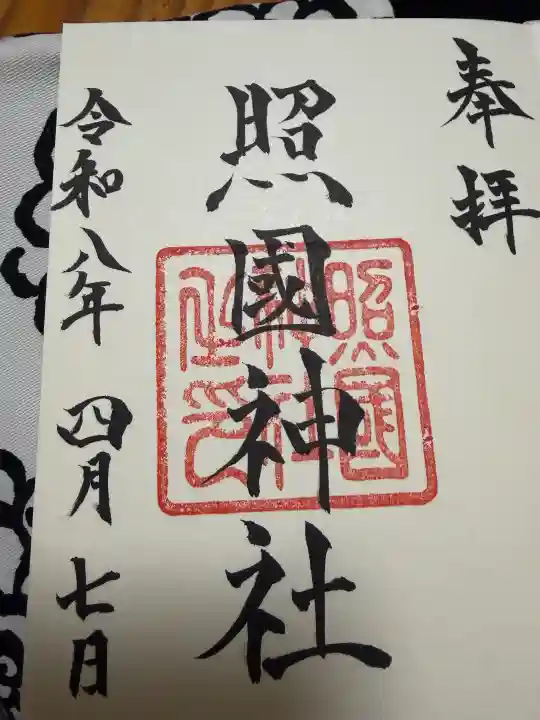 奉拝
照國神社
令和八年 四月 七日
照国
神社
之印